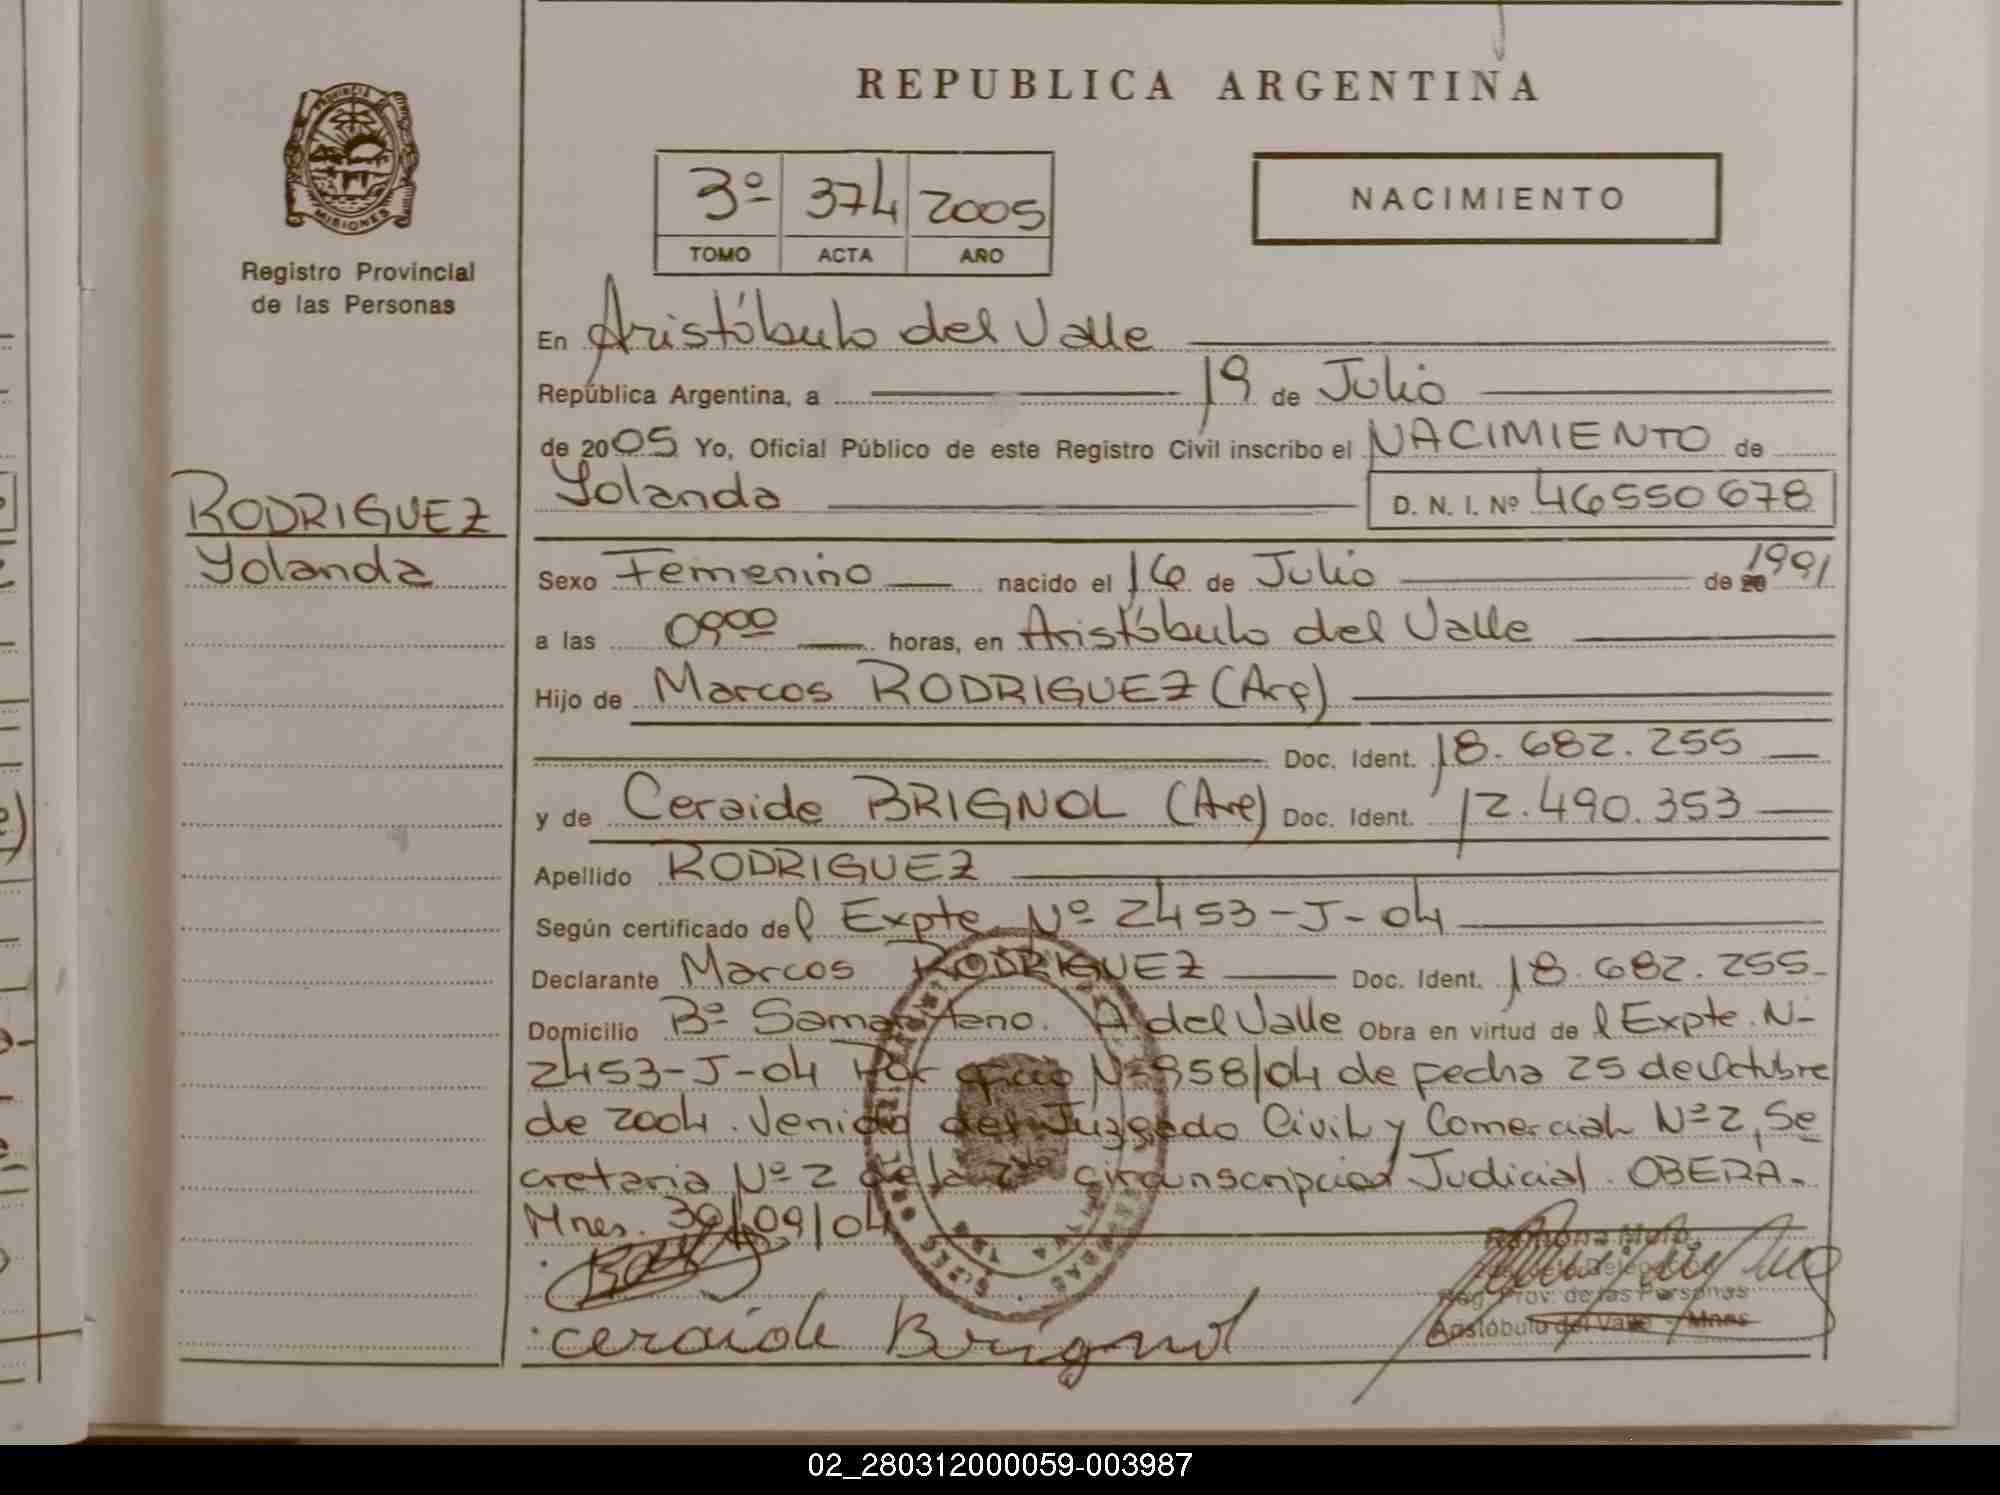 REPUBLICA ARGENTINA
PROVINCIA
MISIONES
Registro Provincial
de las Personas
3º 374 2005
TOMO ACTA AÑO
NACIMIENTO
En Aristóbulo del Valle
República Argentina, a 19 de Julio
de 2005 Yo, Oficial Público de este Registro Civil inscribo el NACIMIENTO de
Yolanda D. N. I. Nº 46550678
RODRIGUEZ
Yolanda
Sexo Femenino nacido el 16 de Julio de 20 1991
a las 09⁰⁰ horas, en Aristóbulo del Valle
Hijo de Marcos RODRIGUEZ (Arg)
Doc. Ident. 18.682.255
y de Ceraide BRIGNOL (Arg) Doc. Ident. 12.490.353
Apellido RODRIGUEZ
Según certificado del Expte Nº 2453-J-04
Declarante Marcos RODRIGUEZ Doc. Ident. 18.682.255
Domicilio Bº Samaritano. A del Valle Obra en virtud del Expte. Nº
2453-J-04 Por oficio Nº 958/04 de fecha 25 de Octubre
de 2004. Venido del Juzgado Civil y Comercial Nº 2, Se
cretaria Nº 2 de la 2da circunscripcion Judicial. OBERA.
Mnes. 30/09/04
Ramona
Reg. Prov. de las Personas
Aristóbulo del Valle - Mnes
ceraide Brignol
02_280312000059-003987